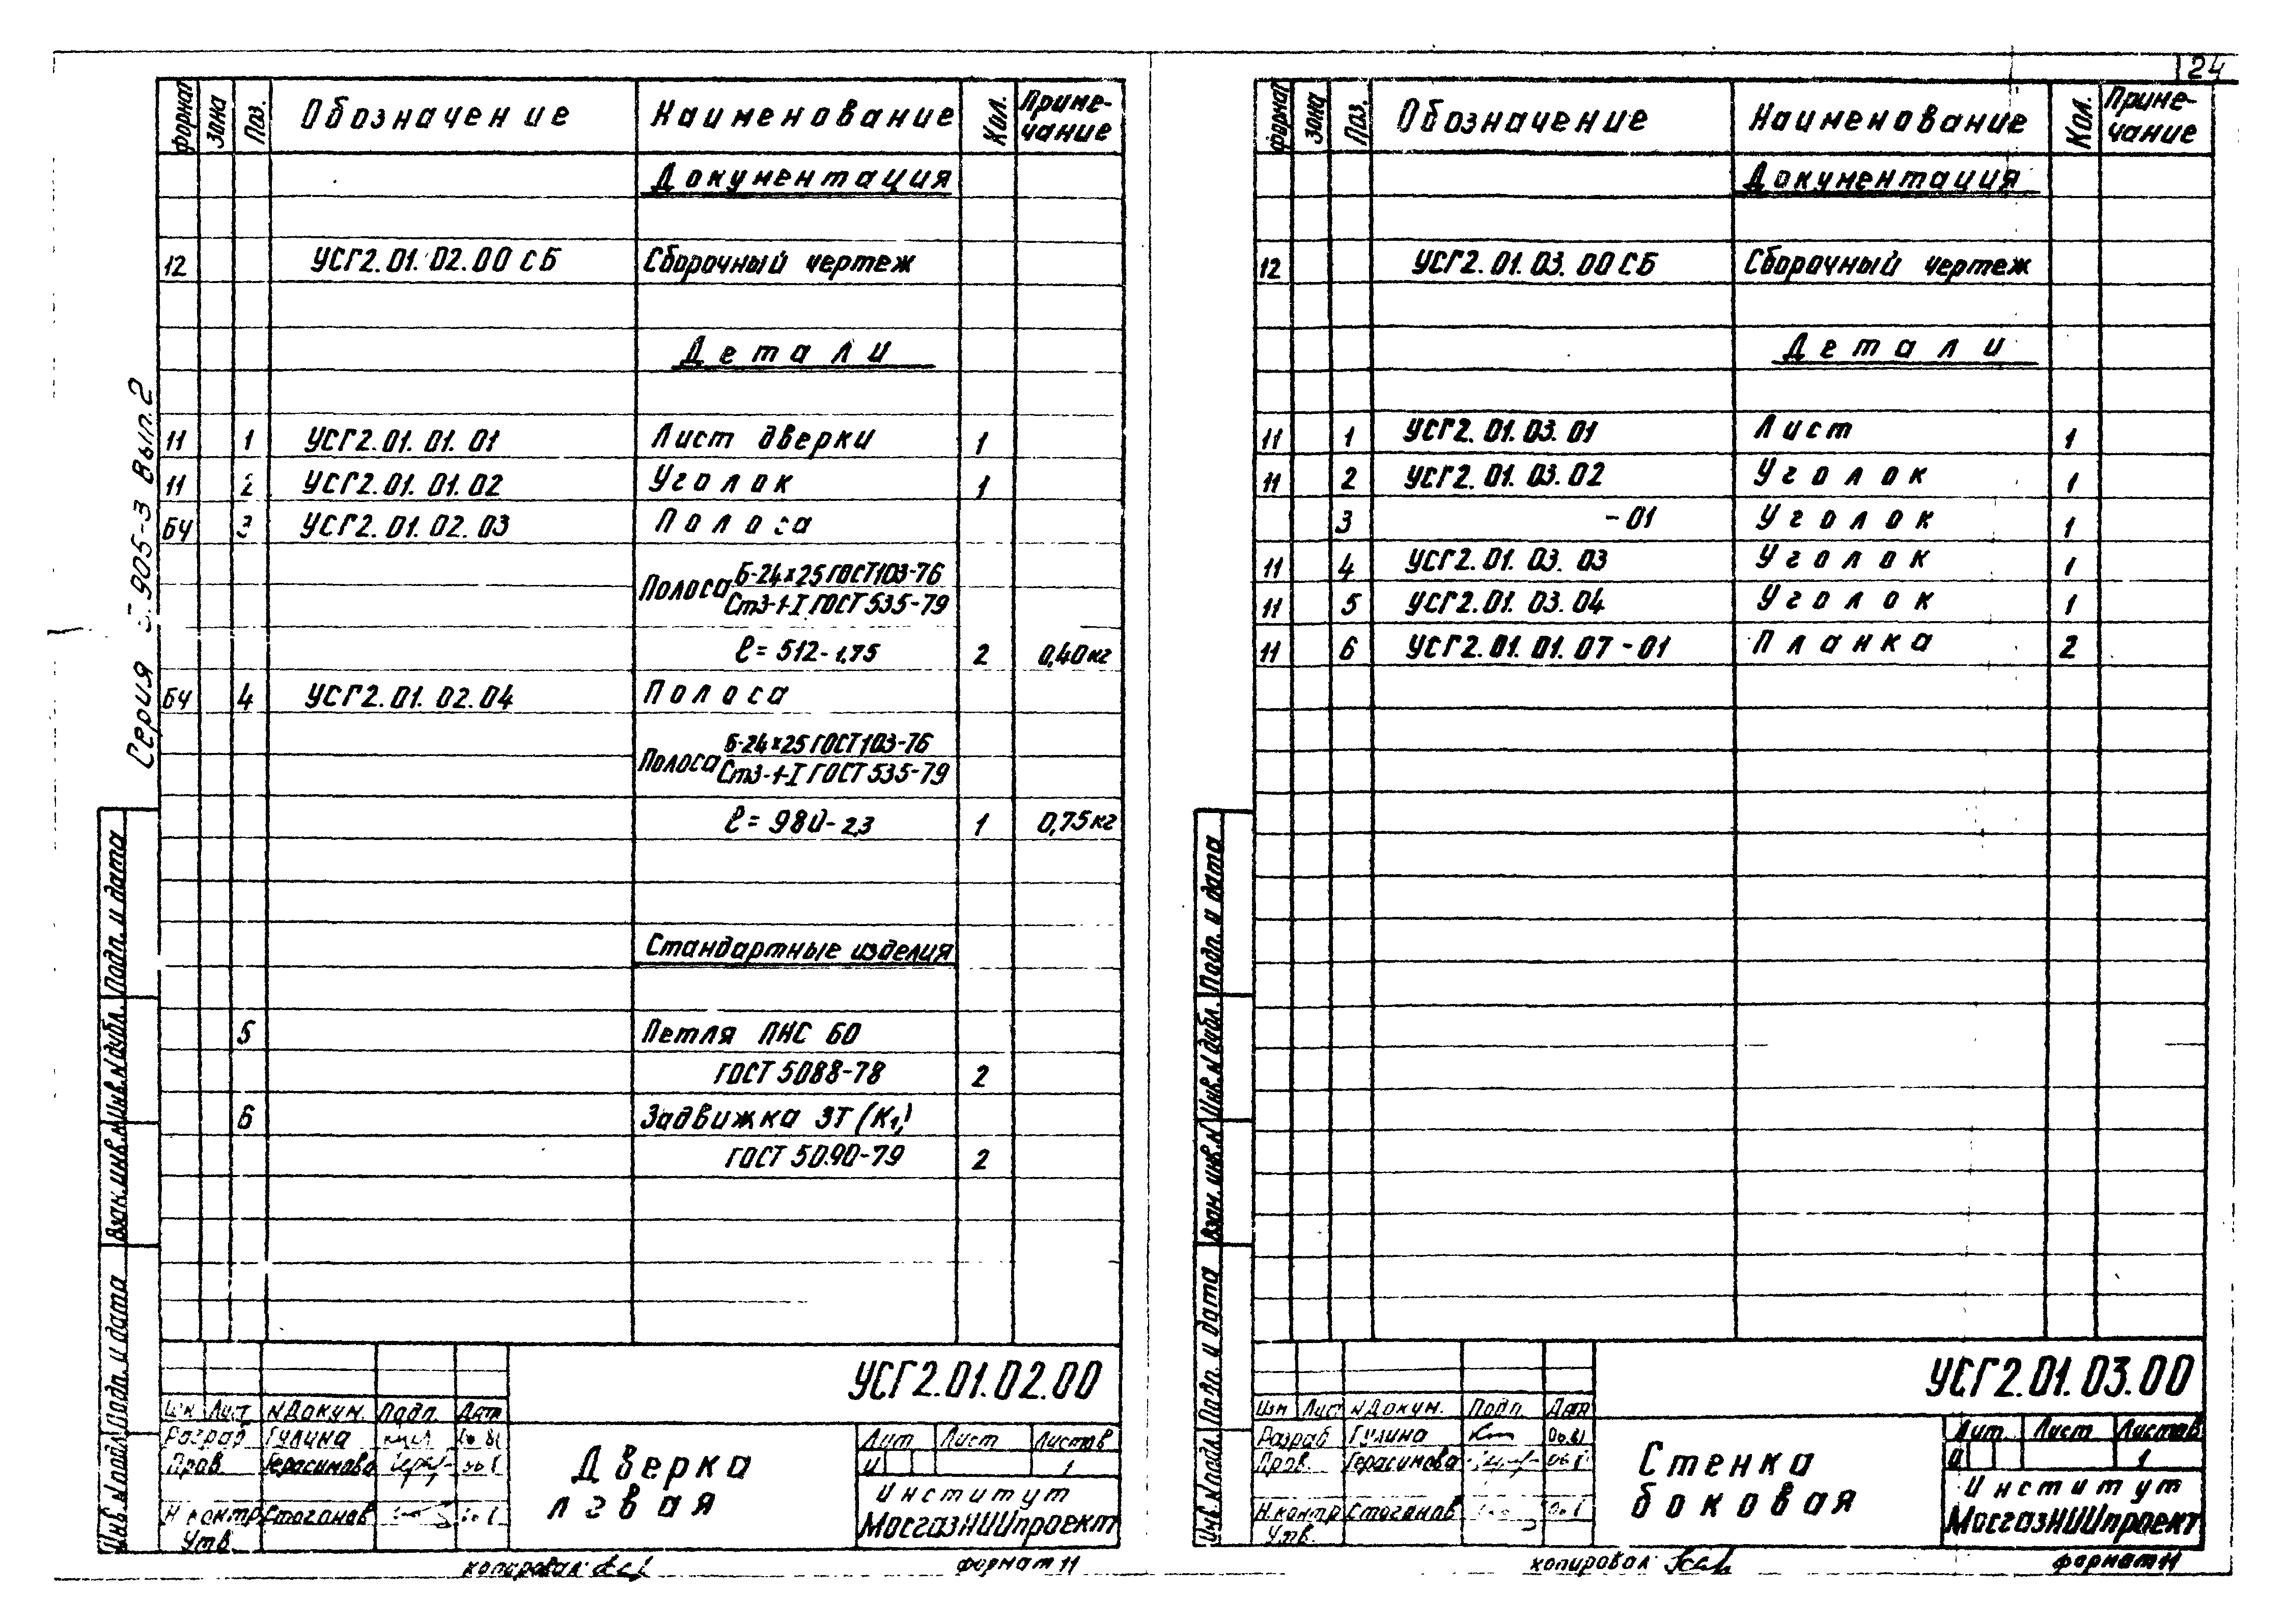 24
Серия 5.905-3 Вып.2
формат зона Поз. Обозначение Наименование Кол. Приме-
чание
Документация
12 УСГ2.01.02.00 СБ Сборочный чертеж
Детали
11 1 УСГ2.01.01.01 Лист дверки 1
11 2 УСГ2.01.01.02 Уголок 1
БЧ 3 УСГ2.01.02.03 Полоса
Полоса Б-24х25 ГОСТ 103-76
Ст3-1-I ГОСТ 535-79
ℓ= 512-1,75 2 0,40 кг
БЧ 4 УСГ2.01.02.04 Полоса
Полоса Б-24х25 ГОСТ 103-76
Ст3-1-I ГОСТ 535-79
ℓ= 980-2,3 1 0,75 кг
Стандартные изделия
5 Петля ПНС 60
ГОСТ 5088-78 2
6 Задвижка ЗТ (К1)
ГОСТ 5090-79 2
Инв.N подл. Подп. и дата Взам.инв.N Инв.N дубл. Подп. и дата
УСГ2.01.02.00
Изм Лист N Докум. Подп. Дата
Разраб Гулина
Пров. Герасимова
Н.контр Стоганов
Утв.
Дверка
левая
Лит Лист Листов
И 1
Институт
МосгазНИИпроект
копировал формат 11
формат зона Поз. Обозначение Наименование Кол. Приме-
чание
Документация
12 УСГ2.01.03.00 СБ Сборочный чертеж
Детали
11 1 УСГ2.01.03.01 Лист 1
11 2 УСГ2.01.03.02 Уголок 1
3 -01 Уголок 1
11 4 УСГ2.01.03.03 Уголок 1
11 5 УСГ2.01.03.04 Уголок 1
11 6 УСГ2.01.01.07-01 Планка 2
Инв.N подл. Подп. и дата Взам.инв.N Инв.N дубл. Подп. и дата
УСГ2.01.03.00
Изм Лист N Докум. Подп. Дата
Разраб Гулина
Пров. Герасимова
Н.контр Стоганов
Утв.
Стенка
боковая
Лит. Лист Листов
И 1
Институт
МосгазНИИпроект
копировал формат 11